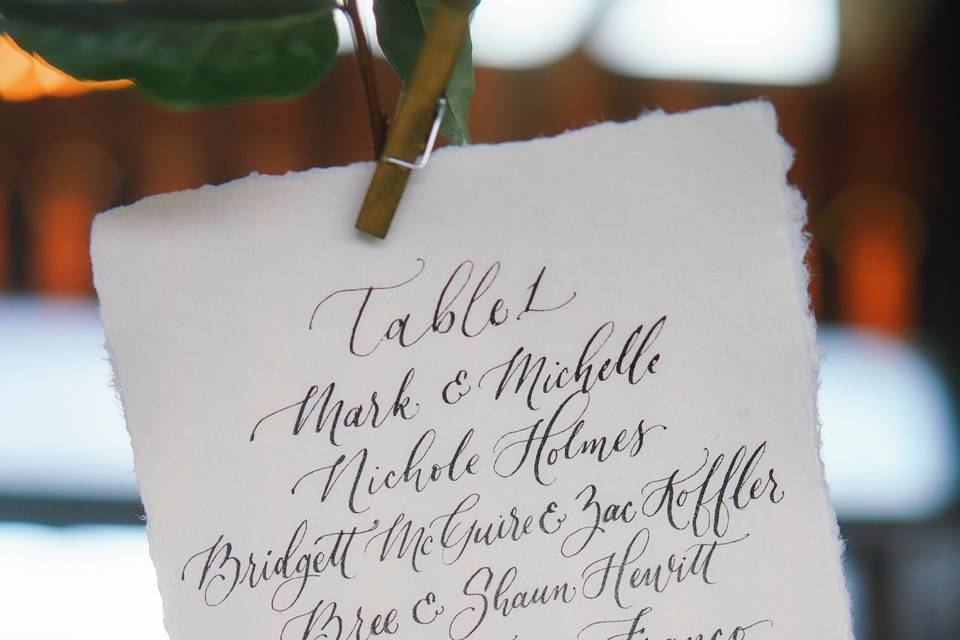 Table 1
Mark & Michelle
Nichole Holmes
Bridgett McGuire & Zac Koffler
Bree & Shaun Hewitt
Franco